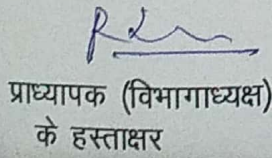 प्राध्यापक (विभागाध्यक्ष)
के हस्ताक्षर